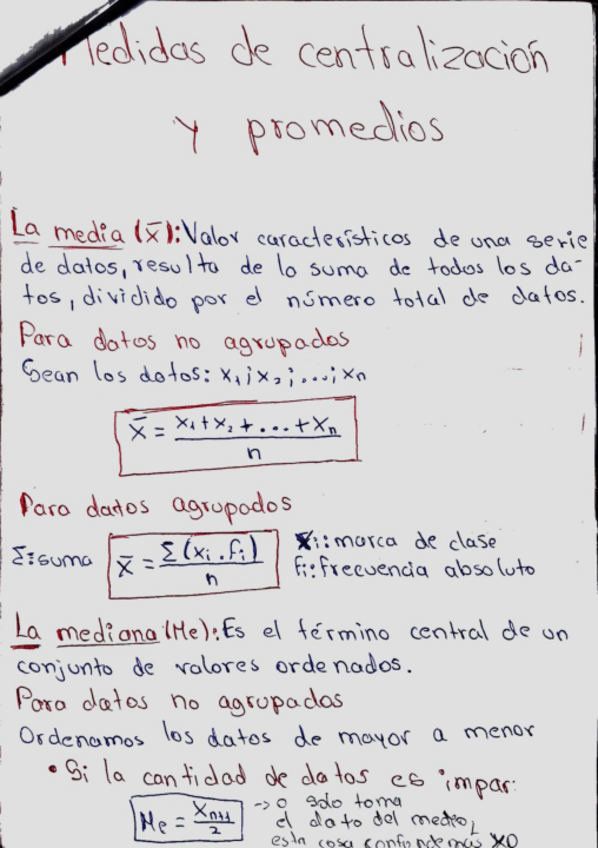 Medidas de centralización
y promedios
La media (x̄): Valor característicos de una serie
de datos, resulta de la suma de todos los da-
tos, dividido por el número total de datos.
Para datos no agrupados
Sean los datos: x₁; x₂; ...; xn
x̄ = (x₁ + x₂ + ... + xn) / n
Para datos agrupados
Σ: suma x̄ = Σ(xi . fi) / n xi: marca de clase
fi: frecuencia absoluta
La mediana (Me): Es el término central de un
conjunto de valores ordenados.
Para datos no agrupados
Ordenamos los datos de mayor a menor
• Si la cantidad de datos es impar:
Me = x n+1 / 2 -> o solo toma
el dato del medio,
esta cosa confunde más XD